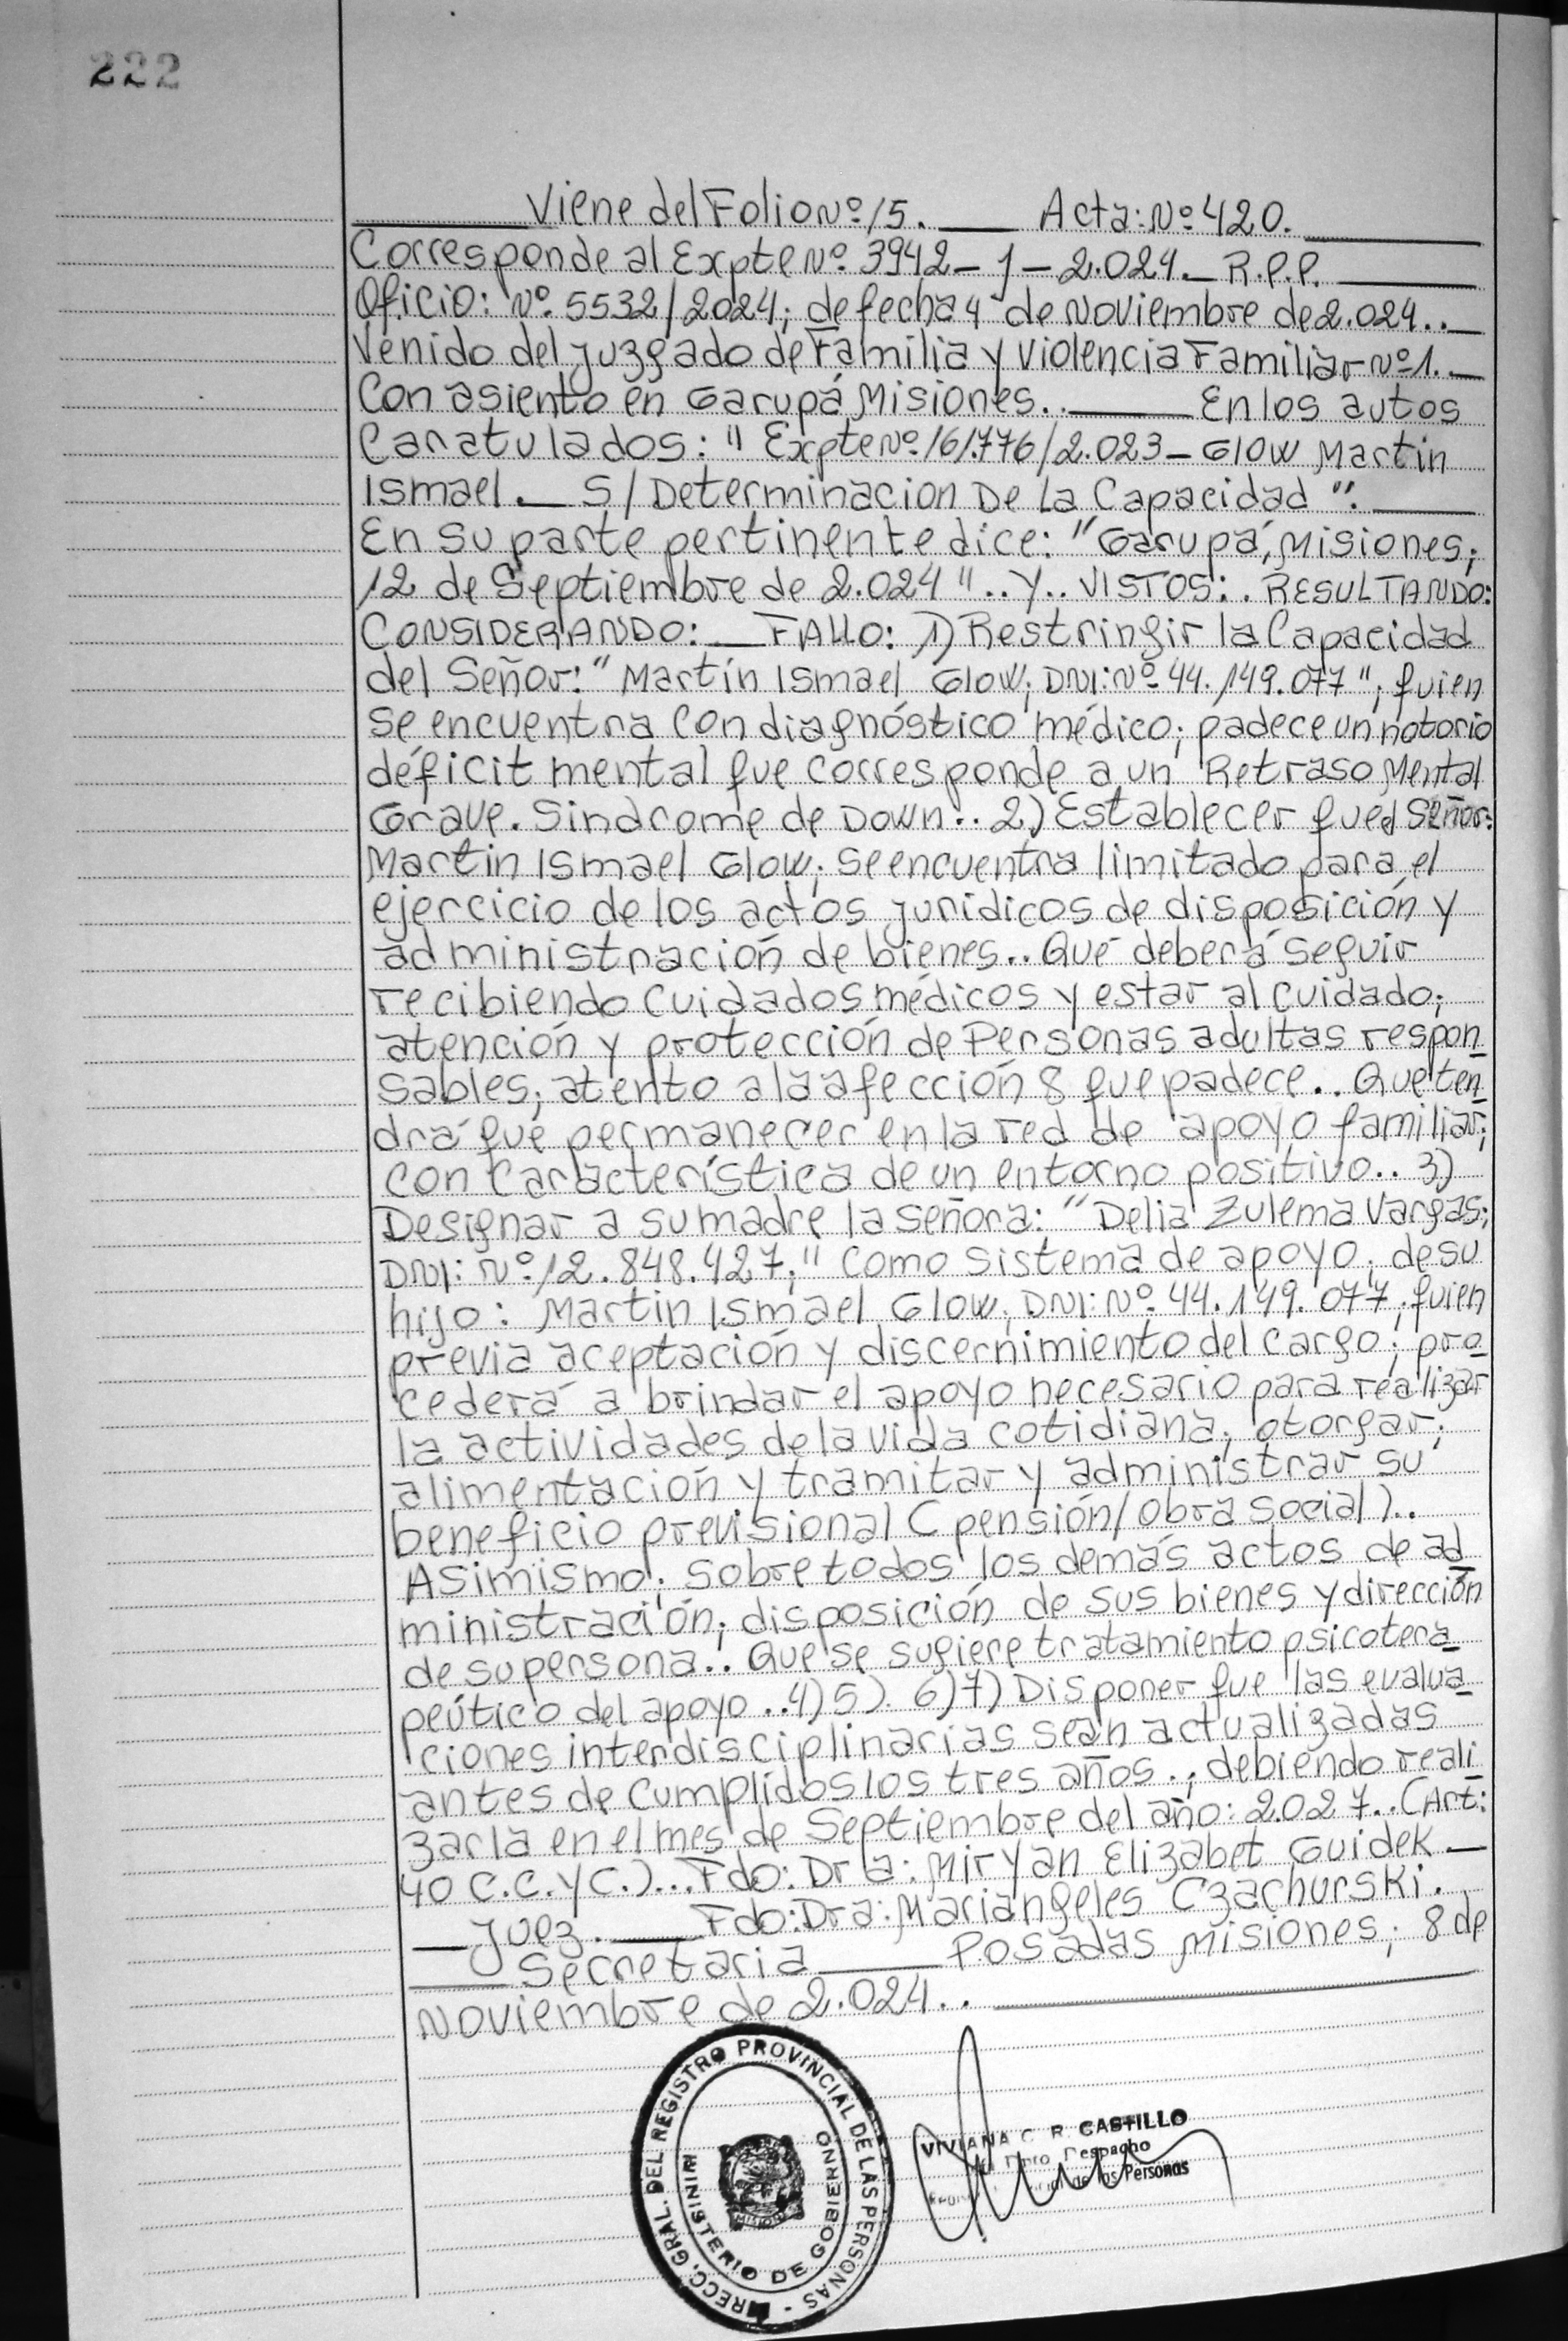 222
Viene del Folio Nº 15. Acta: Nº 420.
Corresponde al Expte Nº 3942-J-2.024. R.P.P.
Oficio: Nº 5532/2024; de fecha 4 de Noviembre de 2.024..
Venido del Juzgado de Familia y Violencia Familiar Nº 1.
Con asiento en Garupá Misiones.. En los autos
Caratulados: "Expte Nº 161.776/2.023-Glow Martin
Ismael. S/Determinacion De La Capacidad".
En su parte pertinente dice: "Garupá, Misiones;
12 de Septiembre de 2.024".. Y.. VISTOS:. RESULTANDO:
CONSIDERANDO: FALLO: 1) Restringir la Capacidad
del Señor: "Martín Ismael Glow; DNI: Nº 44.149.077"; quien
se encuentra con diagnóstico médico; padece un notorio
déficit mental que corresponde a un Retraso Mental
Grave. Sindrome de Down.. 2) Establecer que el Señor:
Martin Ismael Glow; se encuentra limitado para el
ejercicio de los actos jurídicos de disposición y
administración de bienes.. Que deberá seguir
recibiendo cuidados médicos y estar al cuidado;
atención y protección de Personas adultas respon
sables; atento a la afección 8 que padece.. Que ten
drá que permanecer en la red de apoyo familiar;
con característica de un entorno positivo.. 3)
Designar a su madre la señora: "Delia Zulema Vargas;
DNI: Nº 12.848.427;" como sistema de apoyo; de su
hijo: Martin Ismael Glow; DNI: Nº 44.149.077; quien
previa aceptación y discernimiento del cargo; pro
cederá a brindar el apoyo necesario para realizar
la actividades de la vida cotidiana; otorgar;
alimentación y tramitar y administrar su
beneficio previsional (pensión/obra social)..
Asimismo; sobre todos los demás actos de ad
ministración; disposición de sus bienes y dirección
de su persona.. Que se sugiere tratamiento psicotera
peútico del apoyo..4)5). 6)7) Disponer que las evalua
ciones interdisciplinarias sean actualizadas
antes de cumplidos los tres años.; debiendo reali
zarla en el mes de Septiembre del año: 2.027..(Art:
40 C.C. y C.)... Fdo: Dra: Miryan Elizabet Guidek
Juez. Fdo: Dra: Mariangeles Czachurski.
Secretaria Posadas Misiones; 8 de
Noviembre de 2.024..
DIRECC. GRAL. DEL REGISTRO PROVINCIAL DE LAS PERSONAS -
MINISTERIO DE GOBIERNO
MISIONES
VIVIANA C. R. CASTILLO
Dpto Despacho
de las Personas